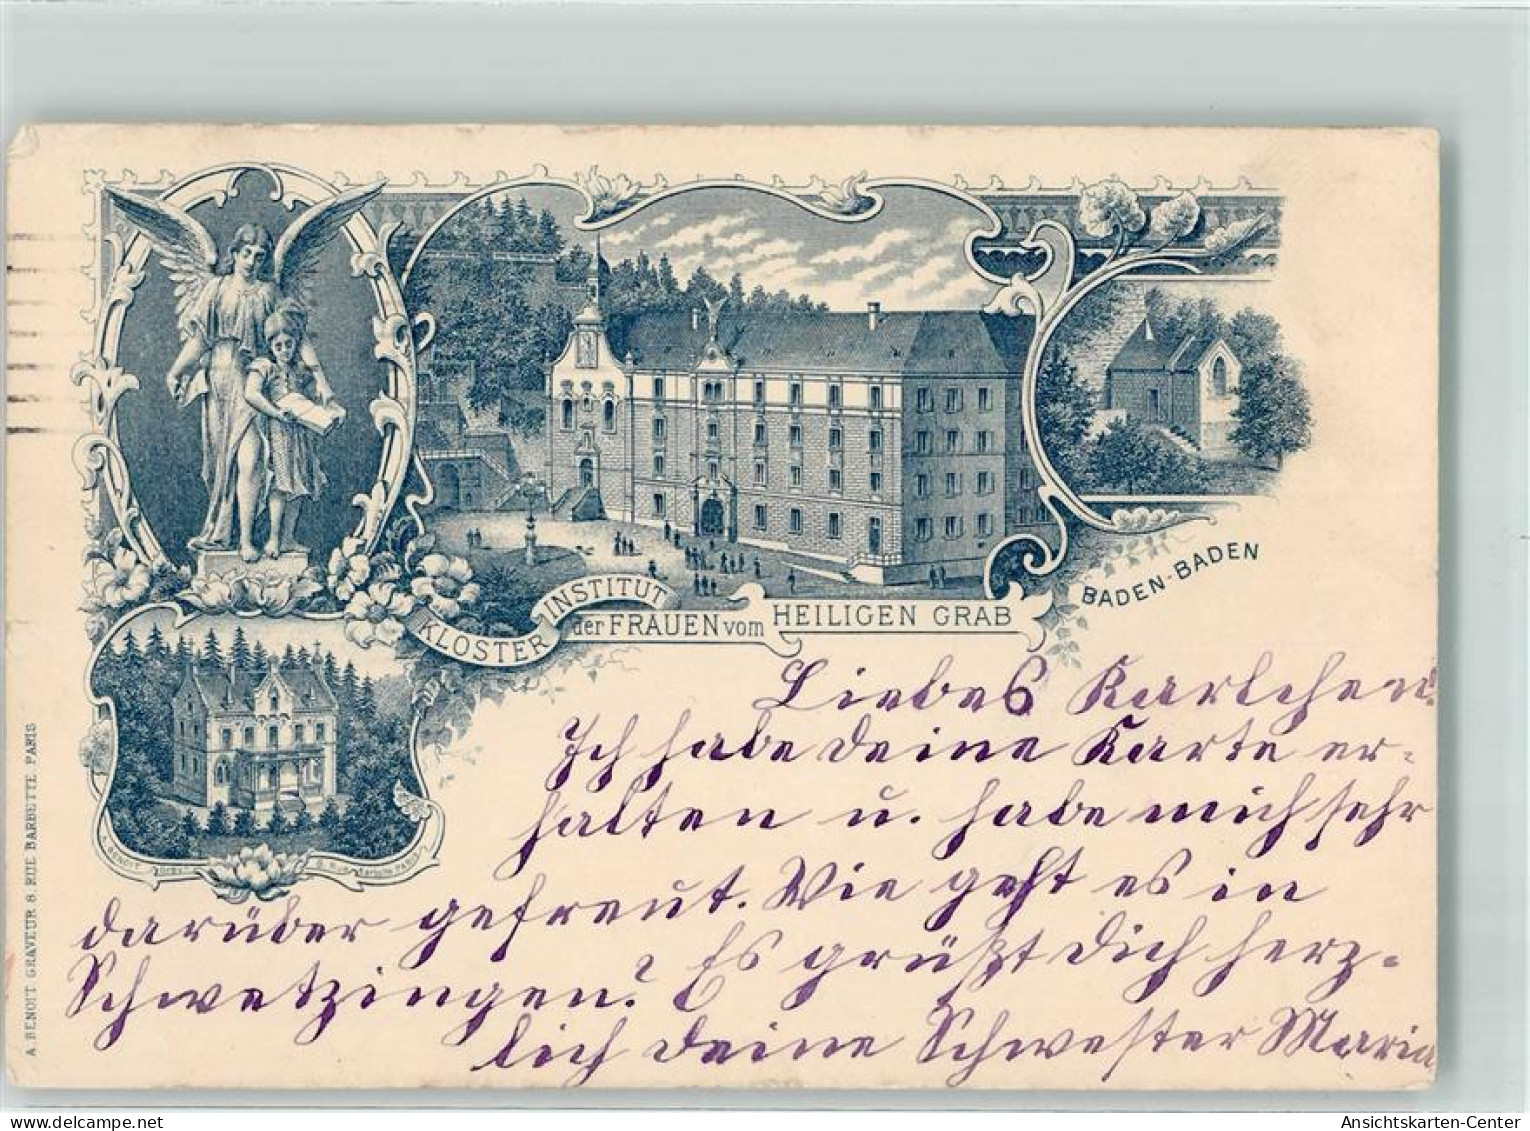 KLOSTER INSTITUT der FRAUEN vom HEILIGEN GRAB
BADEN-BADEN
Liebes Karlchen!
Ich habe deine Karte er-
halten u. habe mich sehr
darüber gefreut. Wie geht es in
Schwetzingen? Es grüßt dich herz-
lich deine Schwester Maria
A. BENOIT GRAVEUR 8 RUE BARBETTE PARIS
A. BENOIT
PARIS
www.delcampe.net
Ansichtskarten-Center